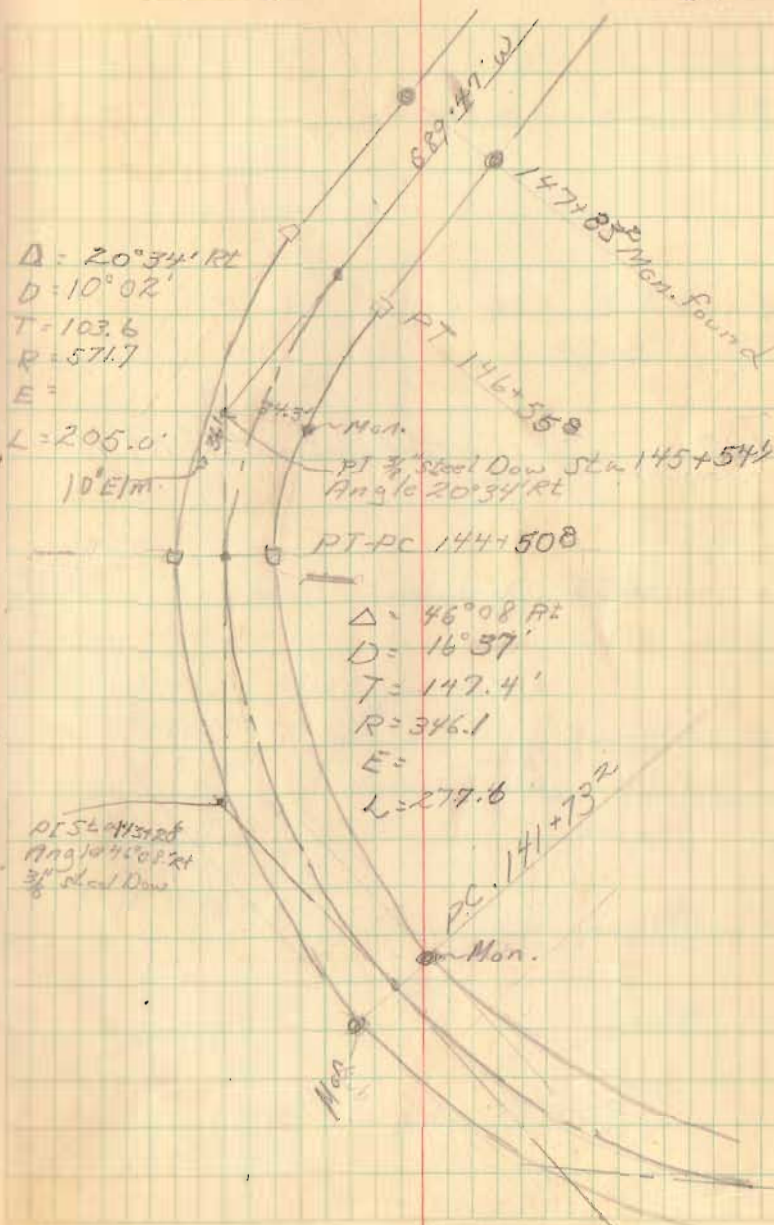 S89°47'W
147+83² Mon. found
Δ = 20°34' Rt
D = 10°02'
T = 103.6
R = 571.7
E =
L = 205.0'
PT 146+55⁸
34.3
Mon.
PI 3/8" Steel Dow Sta 145+54⁴
Angle 20°34' Rt
10" Elm.
PT-PC 144+50⁸
Δ = 46°08 Rt
D = 16°37'
T = 147.4'
R = 346.1
E =
L = 277.6
PI Sta
Angle 46°08' Rt
3/8" steel Dow
P.C. 141+73²
Mon.
Mon.